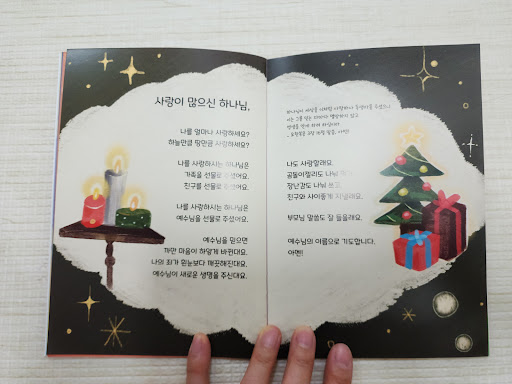 사랑이 많으신 하나님,
나를 얼마나 사랑하세요?
하늘만큼 땅만큼 사랑하세요?
나를 사랑하시는 하나님은
가족을 선물로 주셨어요.
친구를 선물로 주셨어요.
나를 사랑하시는 하나님은
예수님을 선물로 주셨어요.
예수님을 믿으면
까만 마음이 하얗게 바뀐대요.
나의 죄가 흰눈보다 깨끗해진대요.
예수님이 새로운 생명을 주신대요.
하나님이 세상을 이처럼 사랑하사 독생자를 주셨으니
이는 그를 믿는 자마다 멸망하지 않고
영생을 얻게 하려 하심이라
나도 사랑할래요.
장난감도 나눠
친구와 사이좋게 지낼래요.
부모님 말씀도 잘 들을래요.
예수님의 이름으로 기도합니다.
아멘!